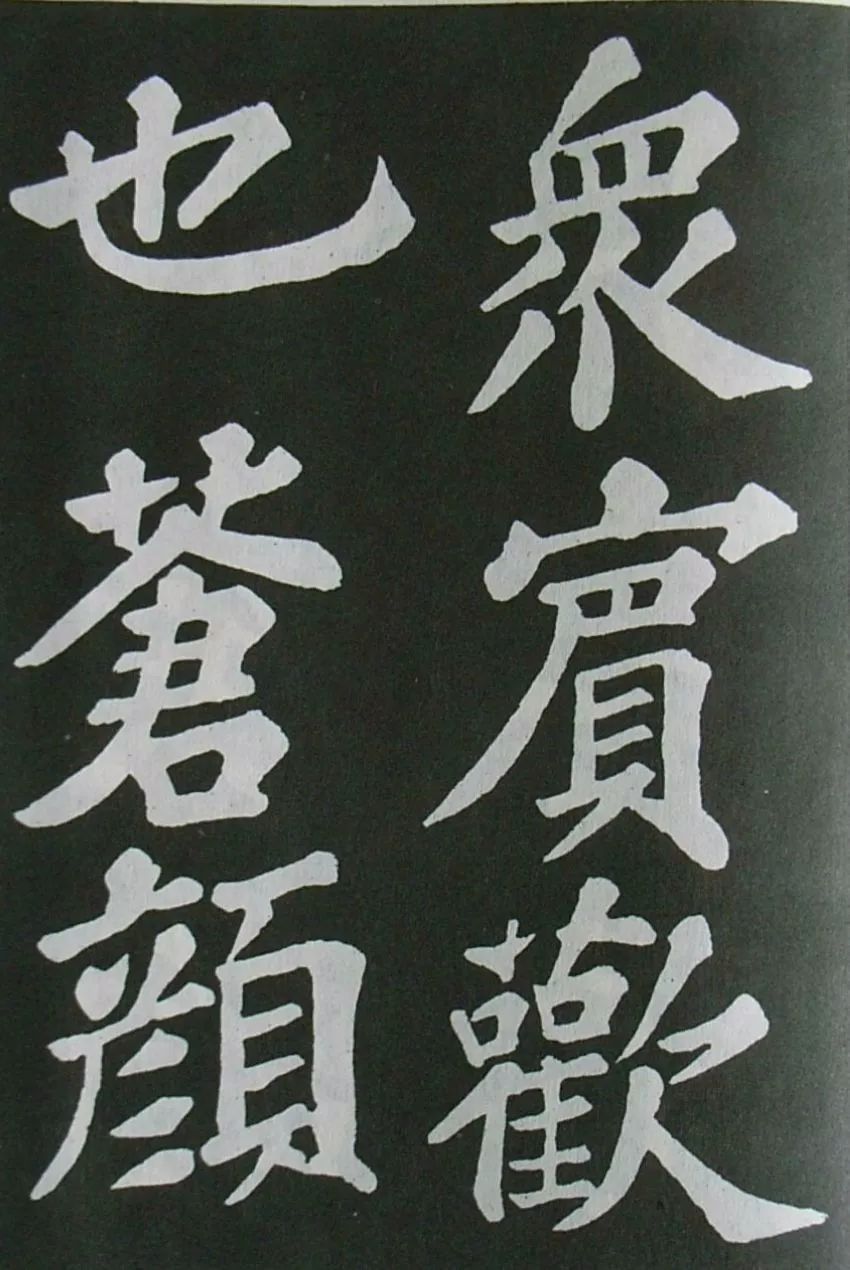 衆賓歡
也蒼顔